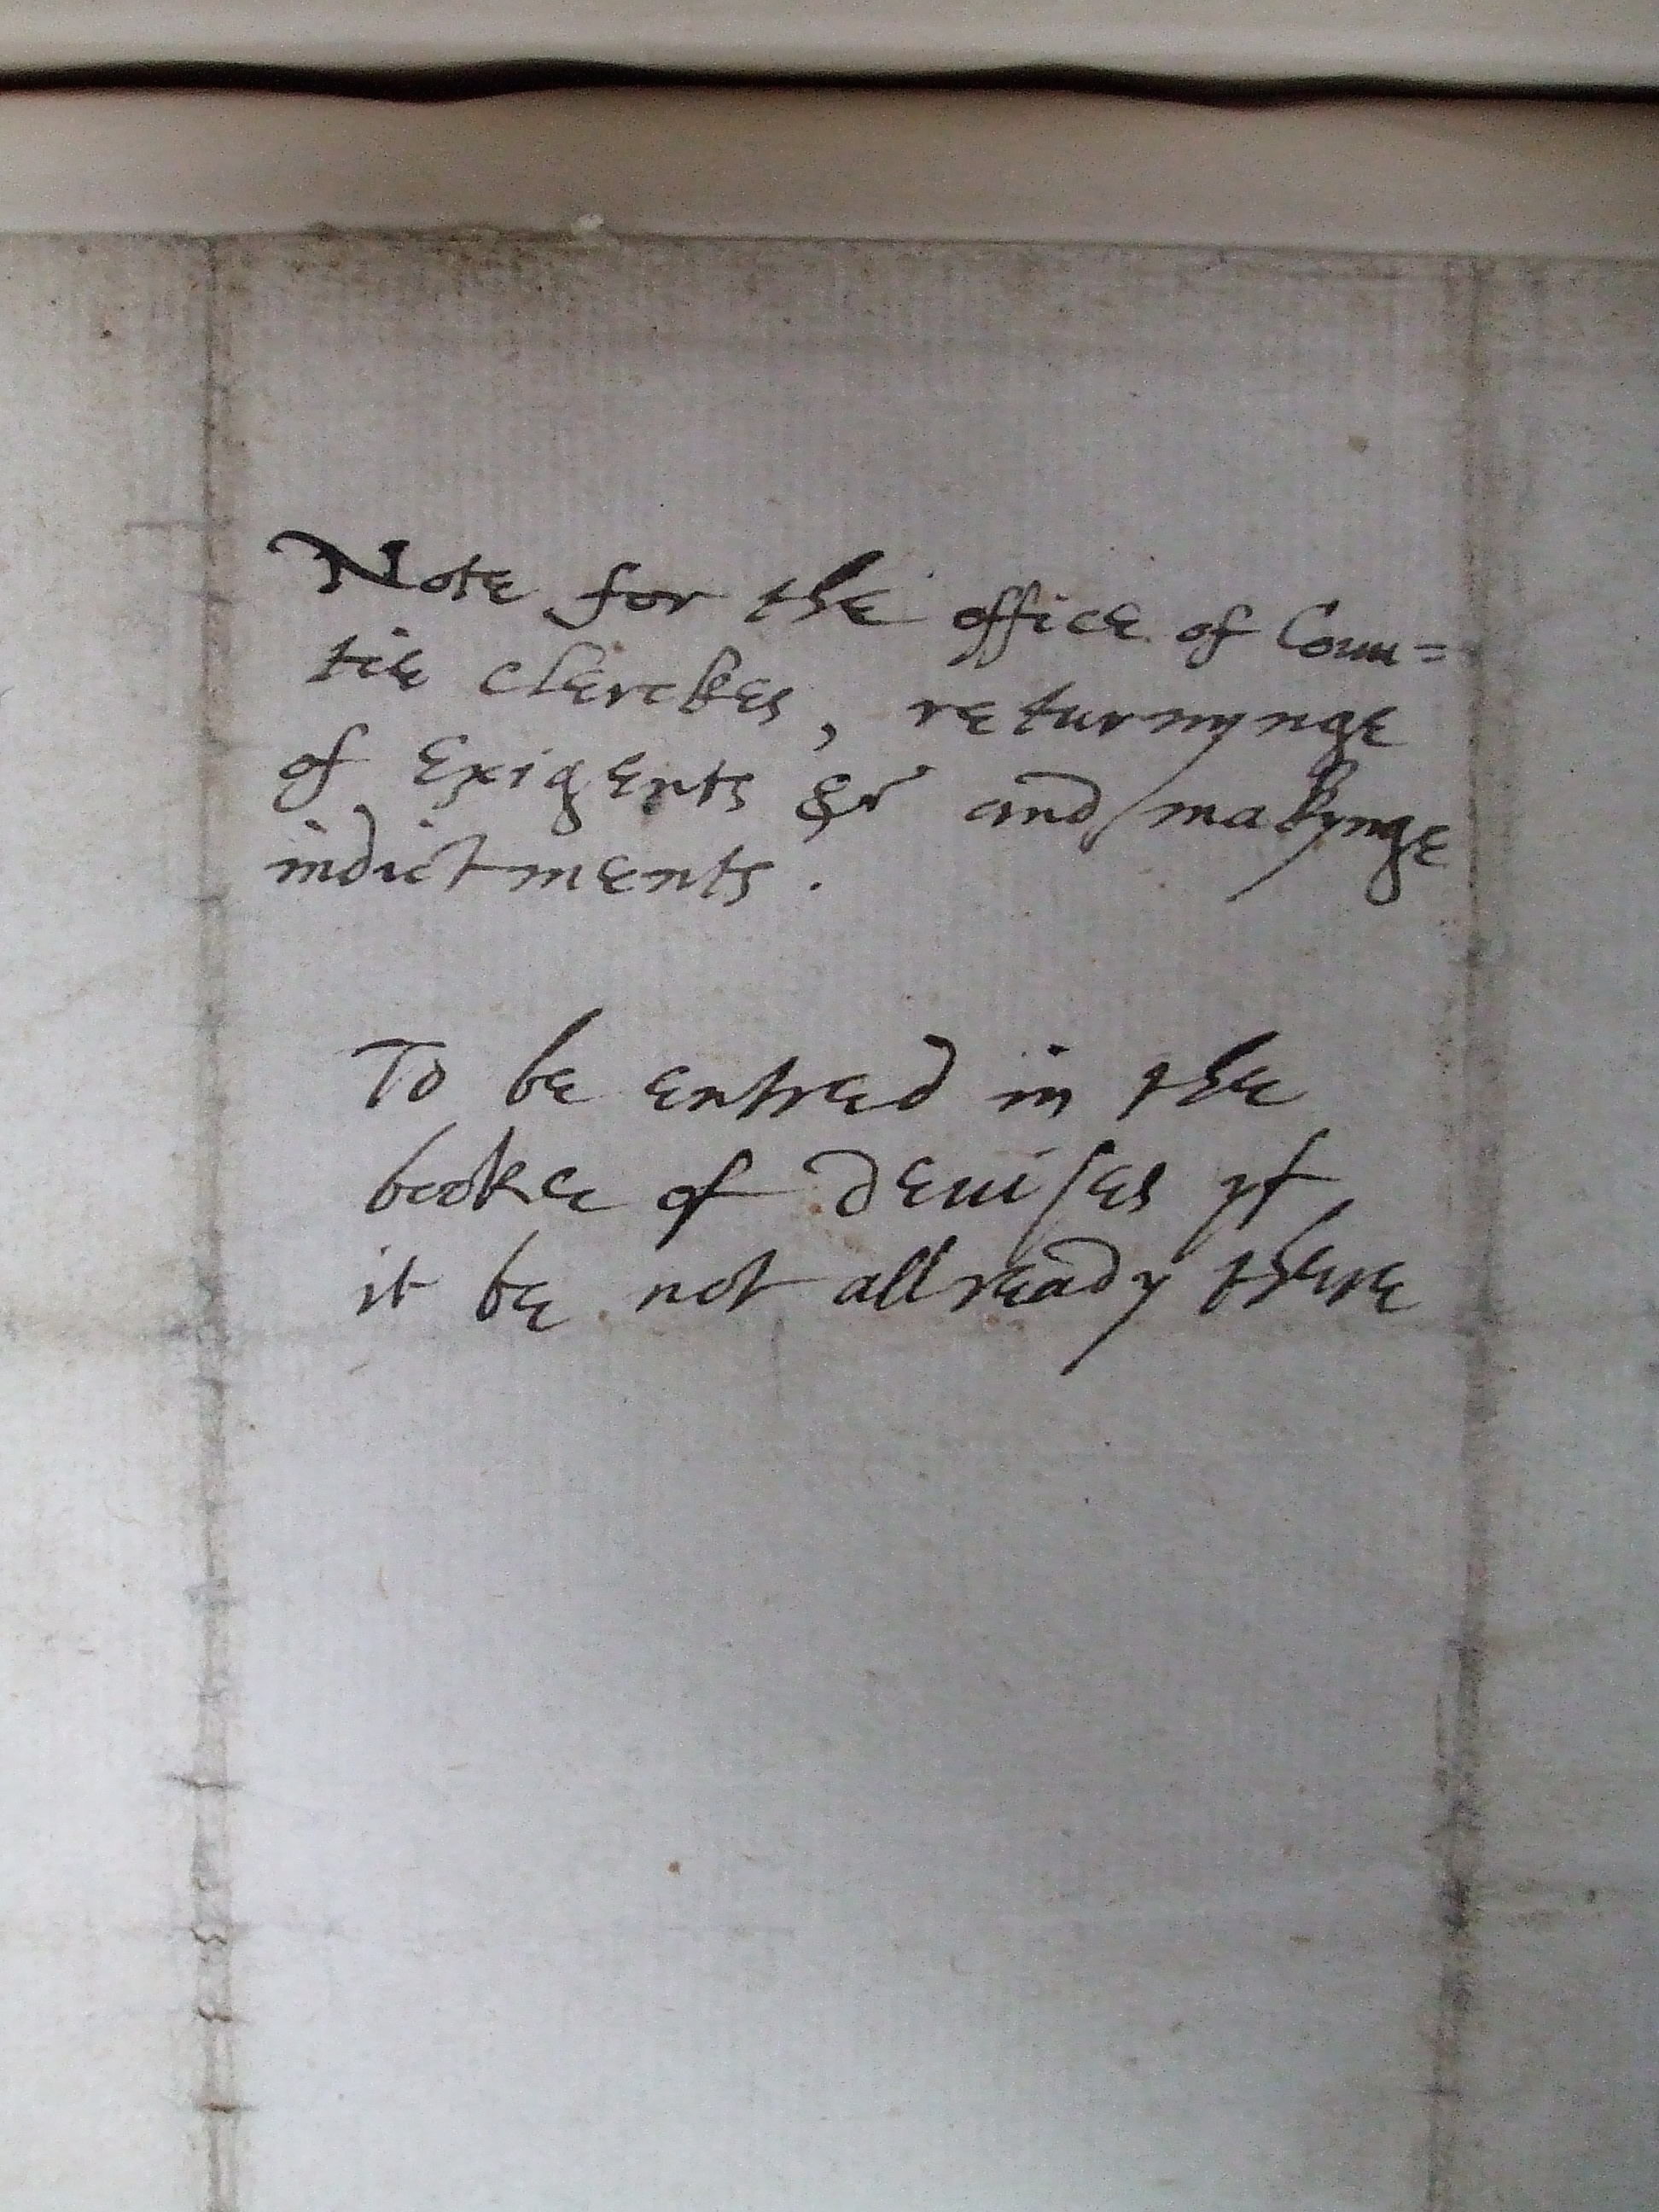 Note for the office of Coun=
tie clerckes, returnynge
of Exigents &c and makynge
indictments.
To be entred in the
booke of deuises yf
it be not allready there